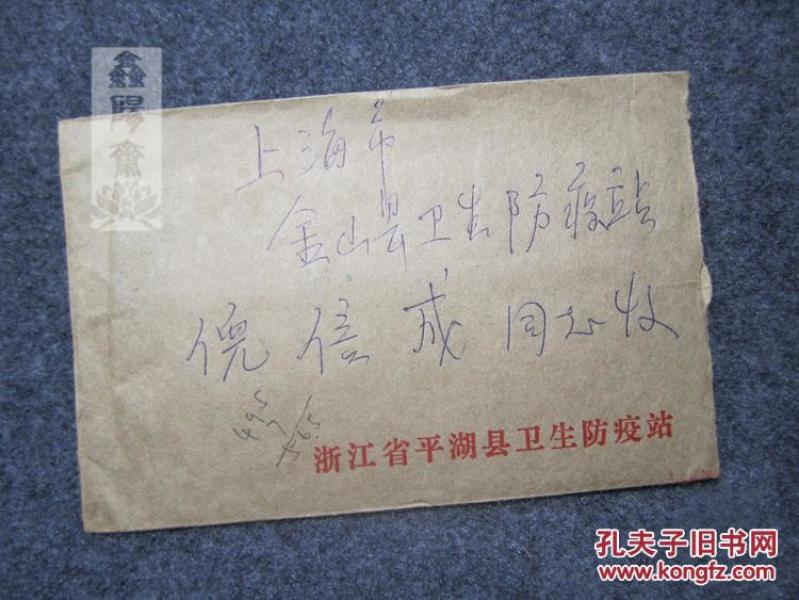 鑫陽齋
上海市
金山县卫生防疫站
倪信成同志收
浙江省平湖县卫生防疫站
孔夫子旧书网
www.kongfz.com